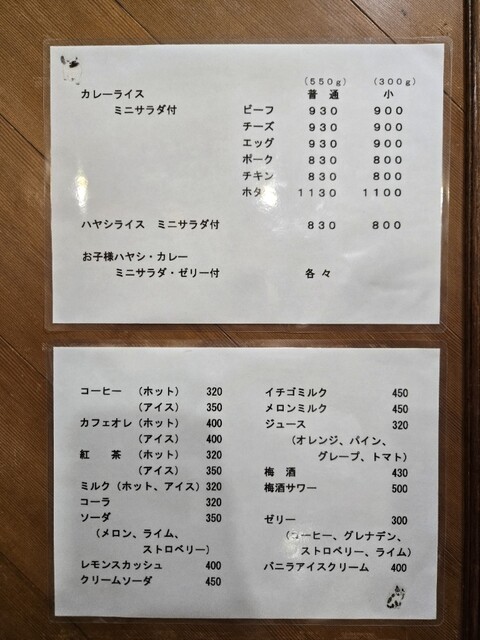 (550g) (300g)
カレーライス 普通 小
ミニサラダ付 ビーフ 930 900
チーズ 930 900
エッグ 930 900
ポーク 830 800
チキン 830 800
ホタ 1130 1100
ハヤシライス ミニサラダ付 830 800
お子様ハヤシ・カレー
ミニサラダ・ゼリー付 各々
コーヒー (ホット) 320
(アイス) 350
カフェオレ (ホット) 400
(アイス) 400
紅 茶 (ホット) 320
(アイス) 350
ミルク (ホット、アイス) 320
コーラ 320
ソーダ 350
(メロン、ライム、
ストロベリー)
レモンスカッシュ 400
クリームソーダ 450
イチゴミルク 450
メロンミルク 450
ジュース 320
(オレンジ、パイン、
グレープ、トマト)
梅 酒 430
梅酒サワー 500
ゼリー 300
(コーヒー、グレナデン、
ストロベリー、ライム)
バニラアイスクリーム 400